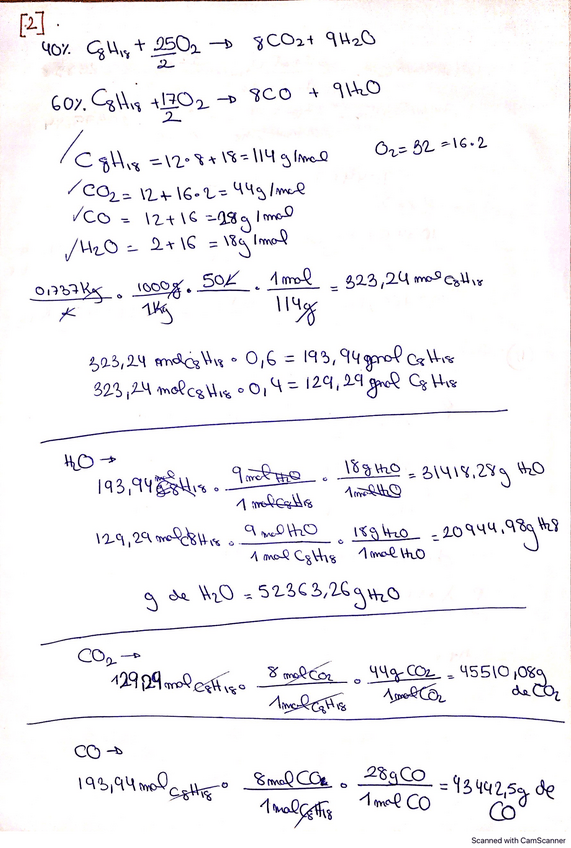 [2].
40% C8H18 + 25/2 O2 → 8CO2 + 9H2O
60% C8H18 + 17/2 O2 → 8CO + 9H2O
C8H18 = 12·8 + 18 = 114 g/mol O2 = 32 = 16·2
CO2 = 12 + 16·2 = 44g/mol
CO = 12 + 16 = 28g/mol
H2O = 2 + 16 = 18g/mol
0,737Kg/L · 1000g/1Kg · 50L · 1mol/114g = 323,24 mol C8H18
323,24 mol C8H18 · 0,6 = 193,94 gmol C8H18
323,24 mol C8H18 · 0,4 = 129,29 gmol C8H18
H2O →
193,94 mol C8H18 · 9 mol H2O/1 mol C8H18 · 18g H2O/1mol H2O = 31418,28g H2O
129,29 mol C8H18 · 9 mol H2O/1 mol C8H18 · 18g H2O/1mol H2O = 20944,98g H2O
g de H2O = 52363,26g H2O
CO2 →
129,29 mol C8H18 · 8 mol CO2/1mol C8H18 · 44g CO2/1mol CO2 = 45510,08g de CO2
CO →
193,94 mol C8H18 · 8mol CO/1mol C8H18 · 28g CO/1mol CO = 43442,5g de CO
Scanned with CamScanner